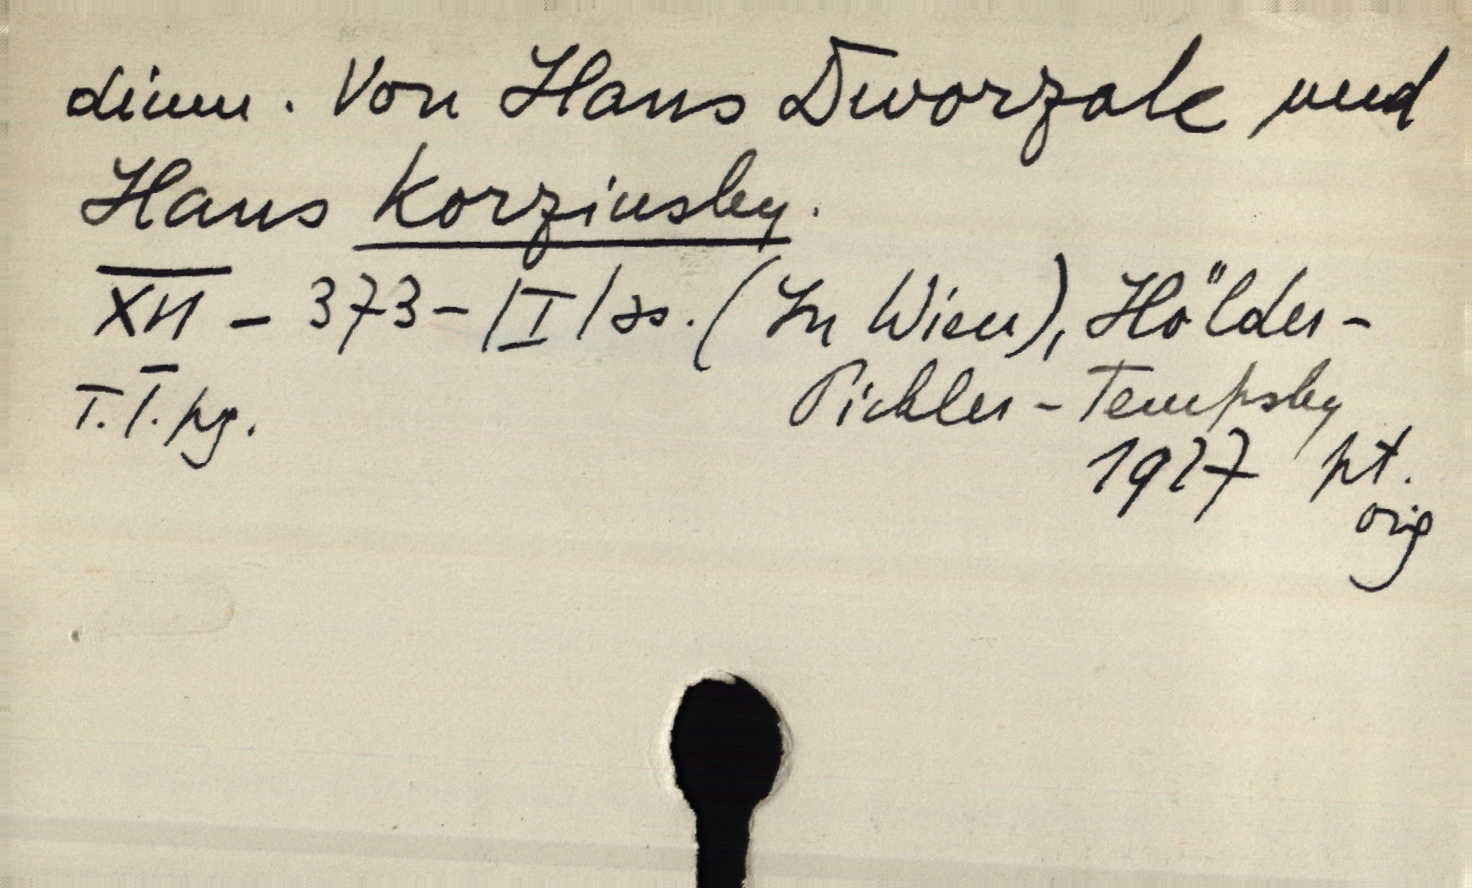 dium. Von Hans Dworzak und
Hans Korzinsky.
XII - 373 - /I/ ss. (In Wien), Hölder-
T. I. pg. Pichler - Tempsky
1927 pt.
orig